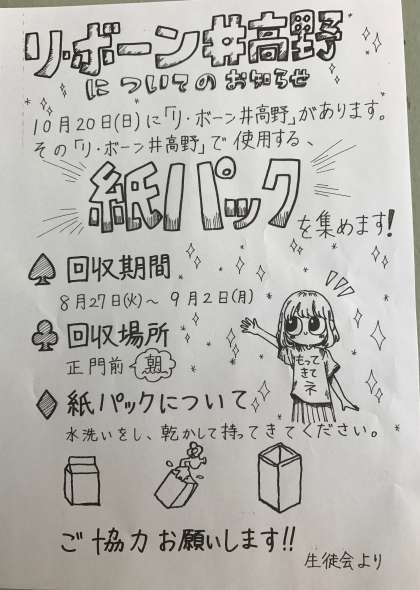 リ・ボーン井高野
についてのお知らせ
10月20日(日)に「リ・ボーン井高野」があります。
その「リ・ボーン井高野」で使用する、
紙パック
を集めます!
回収期間
8月27日(火)～9月2日(月)
回収場所
正門前 朝
紙パックについて
水洗いをし、乾かして持ってきてください。
もって
きて
ネ
ご協力お願いします!!
生徒会より